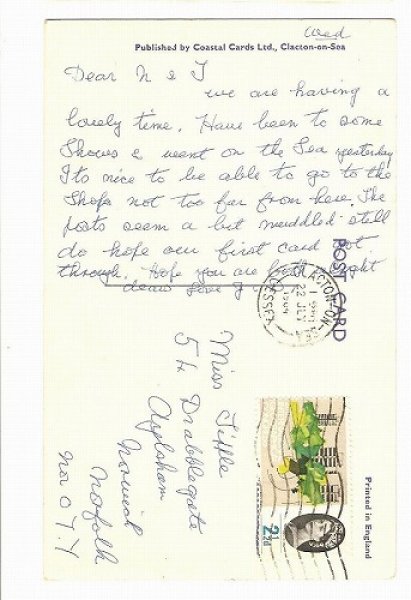 Wed
Published by Coastal Cards Ltd., Clacton-on-Sea
Dear N & J
we are having a
lovely time. Have been to some
Shows & went on the Sea yesterday
Its nice to be able to go to the
Shops not too far from here, The
posts seem a bit muddled still
do hope our first card got
through. Hope you are both alright
dear love
POST CARD
CLACTON-ON-SEA
22 JLY
1964
ESSEX
Miss Tipple
54 Drabblegate
Aylsham
Norwich
Norfolk
Nor O Y Y
2½d
Printed in England